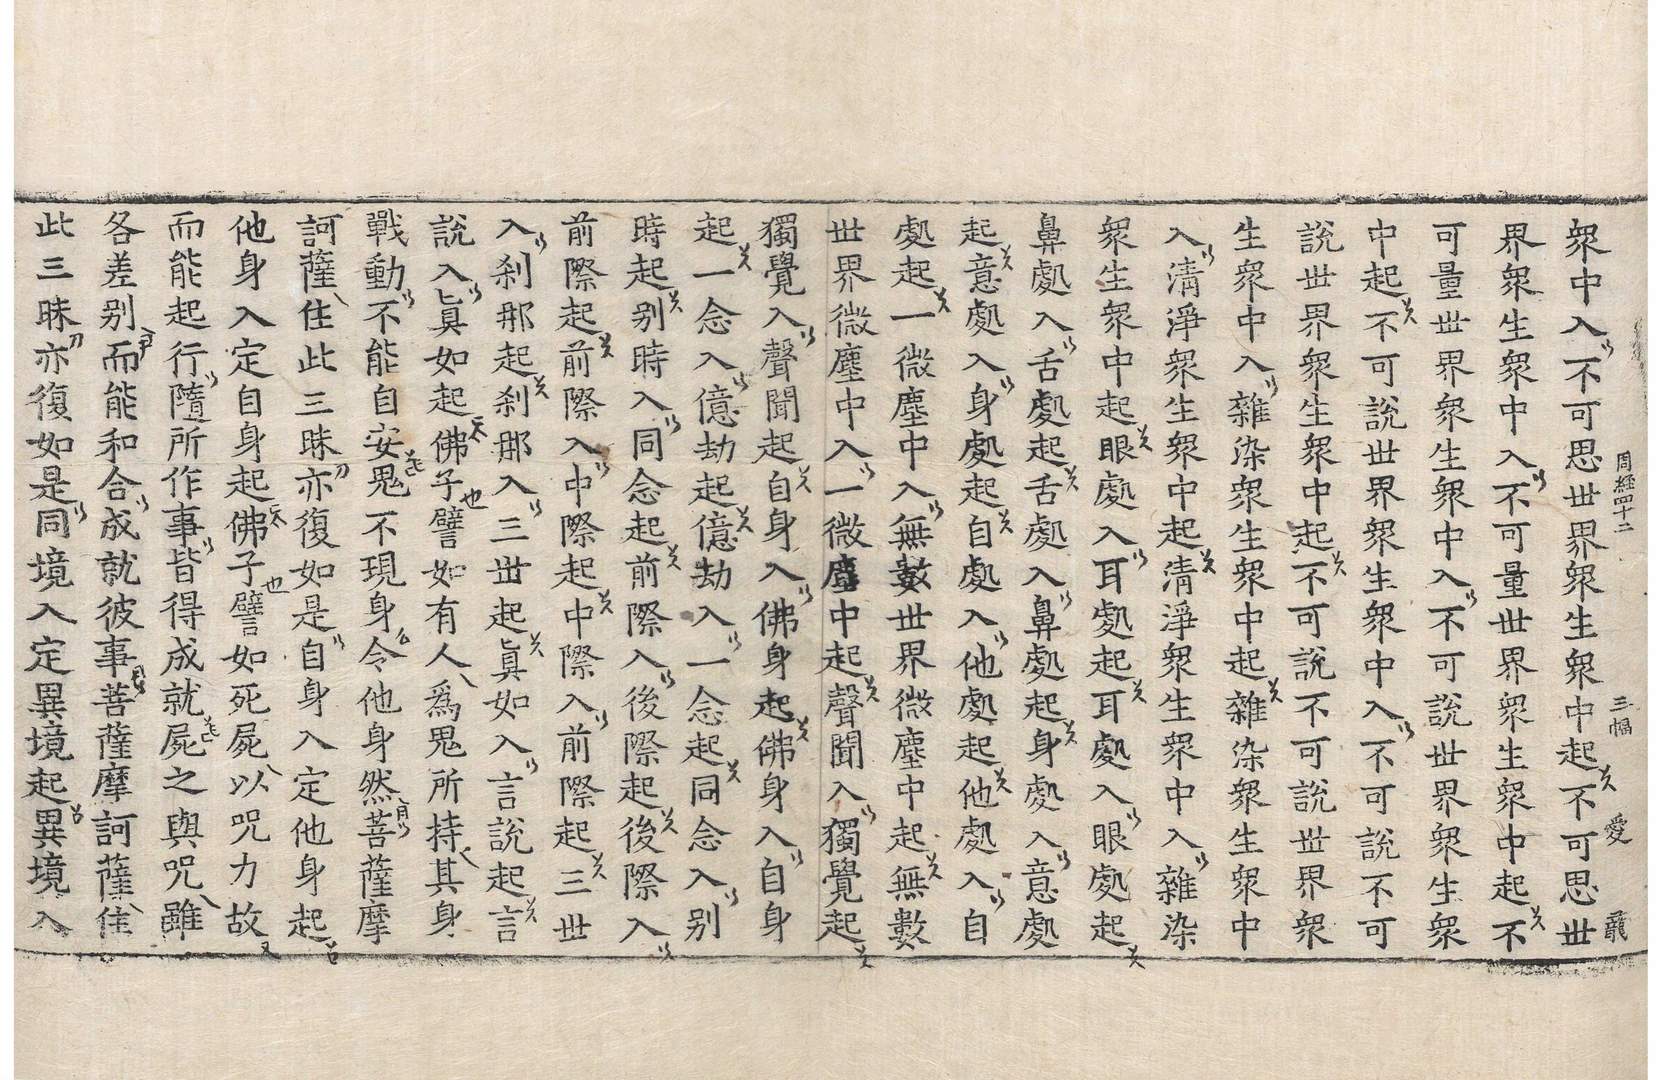 周經四十二 三幅 愛 龍
衆中入不可思世界衆生衆中起不可思世
界衆生衆中入不可量世界衆生衆中起不
可量世界衆生衆中入不可說世界衆生衆
中起不可說世界衆生衆中入不可說不可
說世界衆生衆中起不可說不可說世界衆
生衆中入雜染衆生衆中起雜染衆生衆中
入清淨衆生衆中起清淨衆生衆中入雜染
衆生衆中起眼處入耳處起耳處入眼處起
鼻處入舌處起舌處入鼻處起身處入意處
起意處入身處起自處入他處起他處入自
處起一微塵中入無數世界微塵中起無數
世界微塵中入一微塵中起聲聞入獨覺起
獨覺入聲聞起自身入佛身起佛身入自身
起一念入億劫起億劫入一念起同念入别
時起别時入同念起前際入後際起後際入
前際起前際入中際起中際入前際起三世
入刹那起刹那入三世起眞如入言說起言
說入眞如起佛子譬如有人爲鬼所持其身
戰動不能自安鬼不現身令他身然菩薩摩
訶薩住此三昧亦復如是自身入定他身起
他身入定自身起佛子譬如死屍以呪力故
而能起行隨所作事皆得成就屍之與呪雖
各差别而能和合成就彼事菩薩摩訶薩住
此三昧亦復如是同境入定異境起異境入